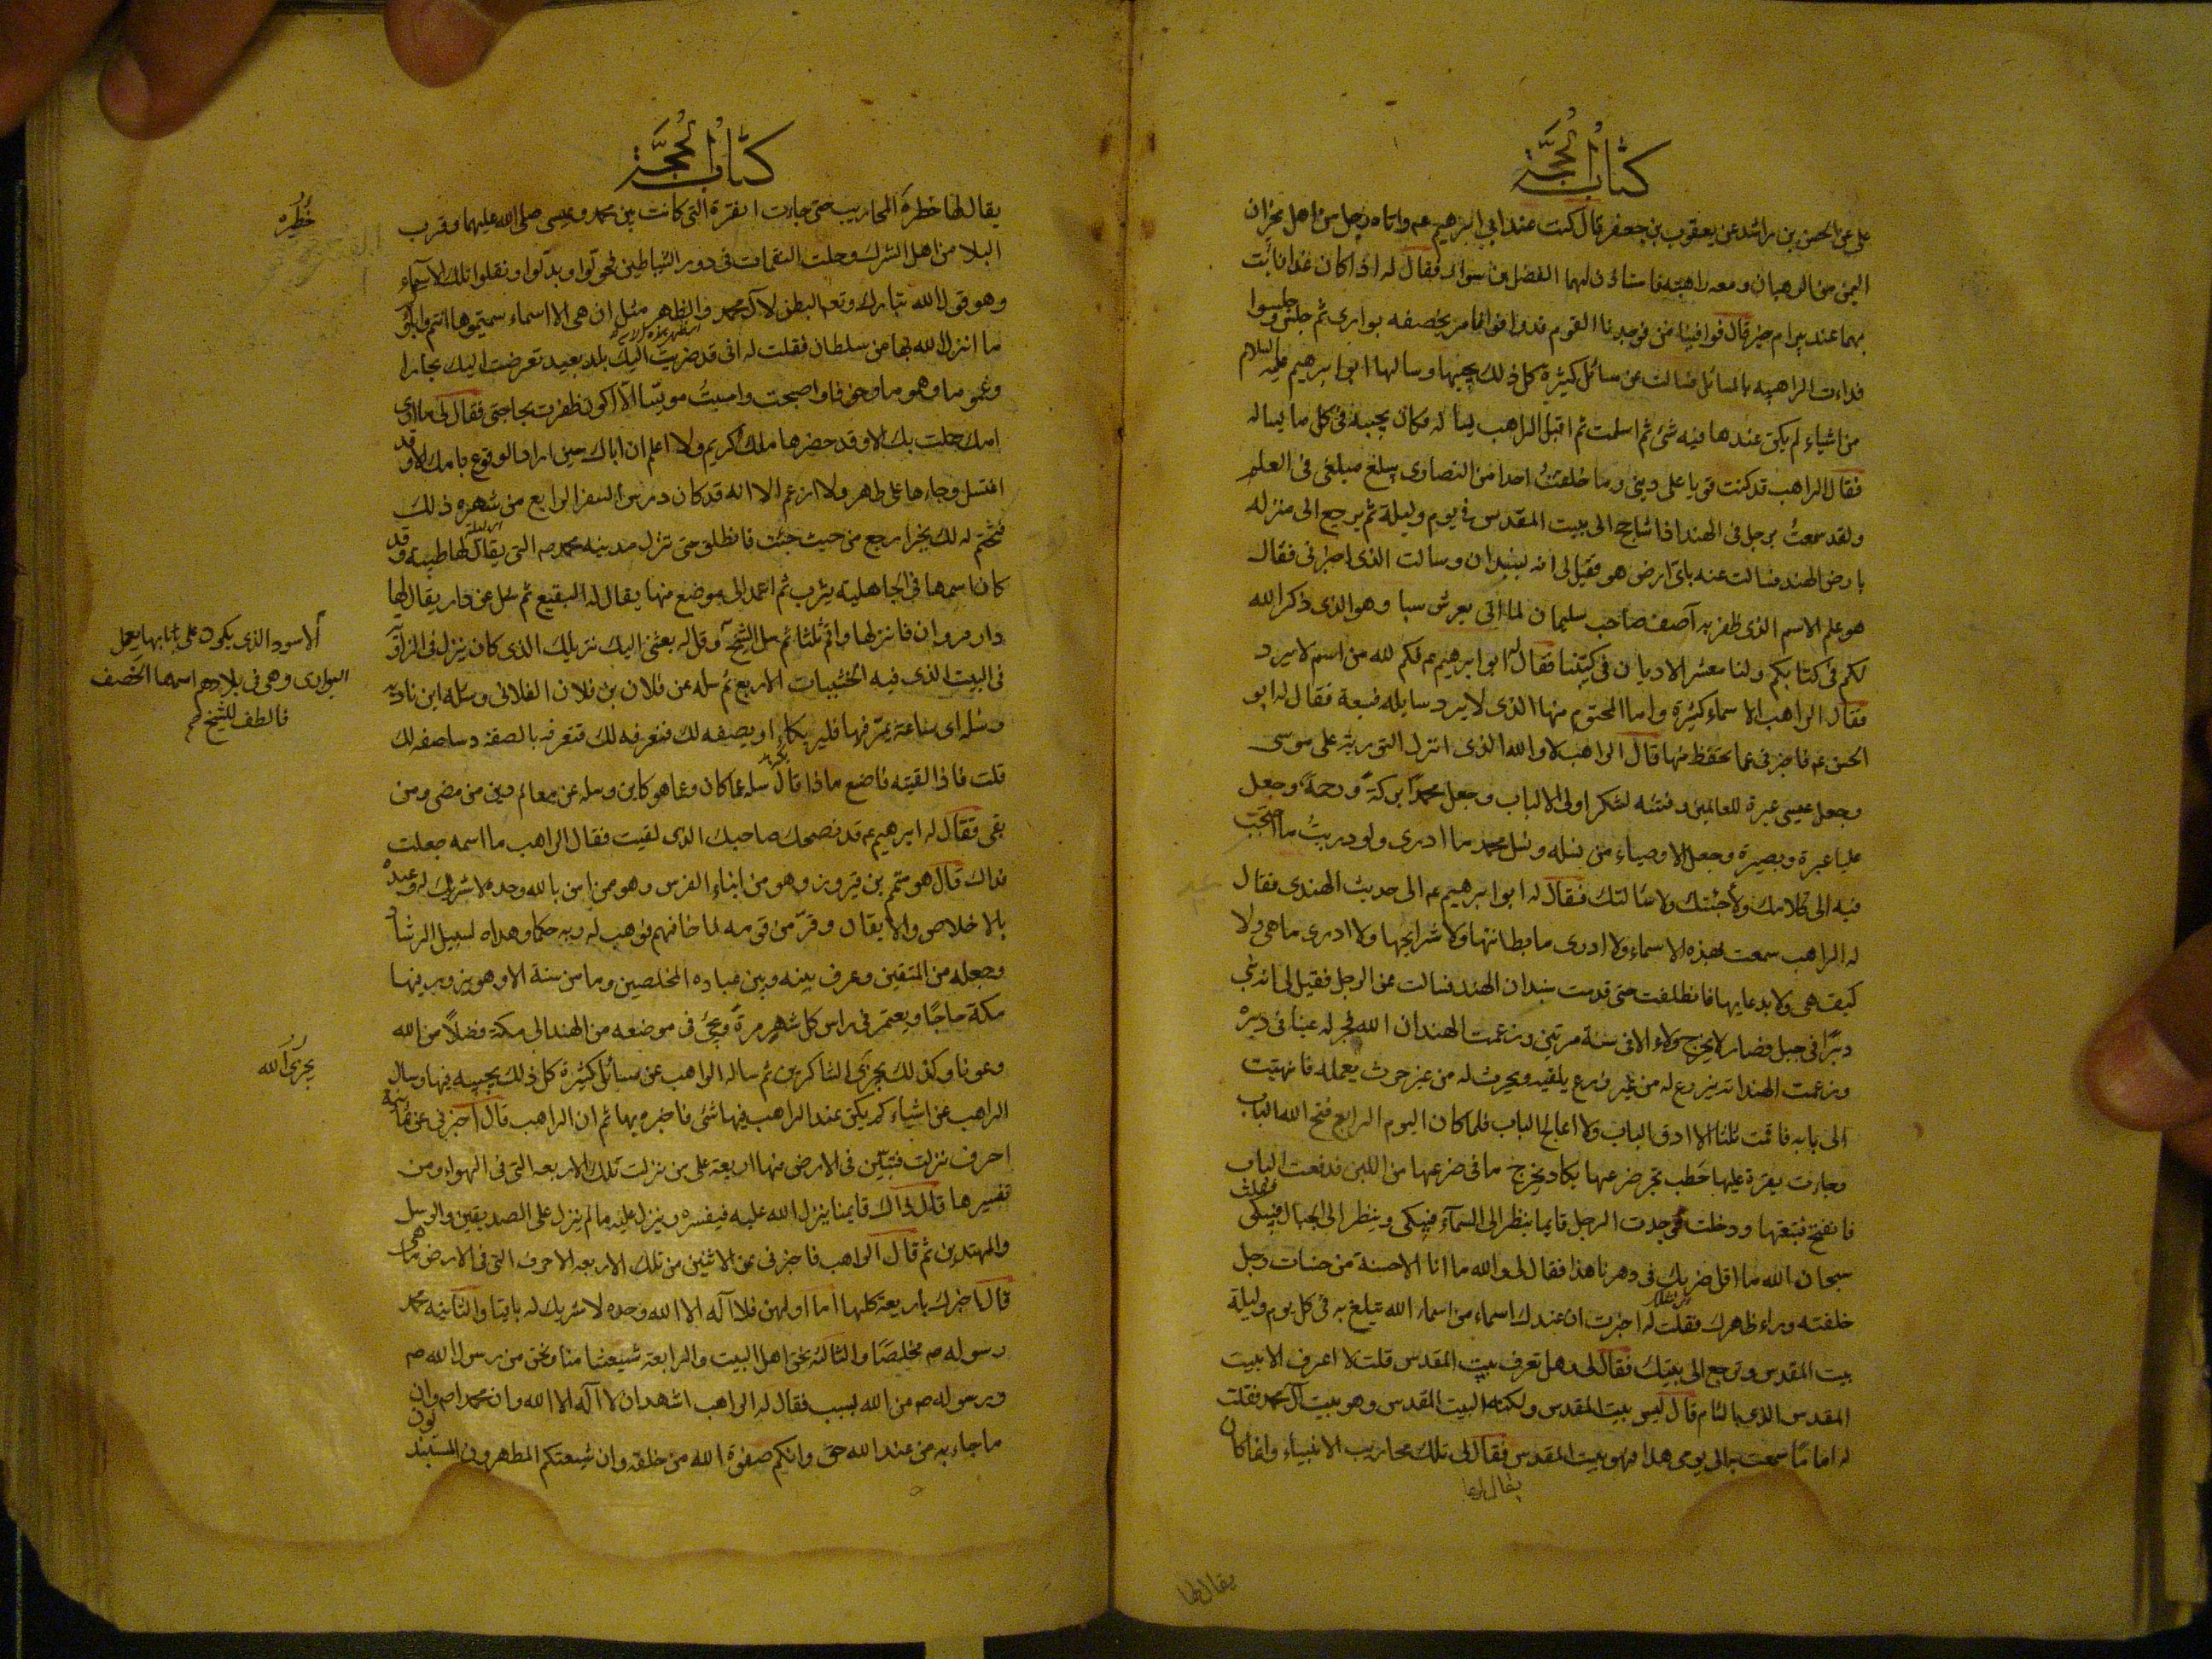 كتاب الحجة
علي عن الحسن بن راشد عن يعقوب بن جعفر قال كنت عند ابي ابرهيم عم واتاه رجل من اهل نجران
اليمن من الرهبان ومعه راهبة فاستاذن لهما الفضل بن سوار فقال له اذا كان غدا فأت
بهما عند بير ام خير قال فوافينا من فوجدنا القوم قد وافوا فامر بخصفه بواري ثم جلس وجلسوا
فداءت الراهبه بالمسائل فسالت عن مسائل كثيرة كل ذلك يجيبها وسالها ابو ابرهيم عليه السلام
من اشياء لم يكن عندها فيه شئ ثم اسلمت ثم اقبل الراهب يساله فكان يجيبه في كل ما يساله
فقال الراهب قد كنت قويا على ديني وما خلفت احدا من النصارى يبلغ مبلغي في العلم
ولقد سمعت برجل في الهند اذا شاء حج الى بيت المقدس في يوم وليلة ثم يرجع الى منزله
بارض الهند فسالت عنه باي ارض هو فقيل لي انه بسبدان وسالت الذي اخبرني فقال
هو علم الاسم الذي ظفر به آصف صاحب سليمان لما اتى بعرش سبا وهو الذي ذكر الله
لكم في كتابكم ولنا معشر الاديان في كتبنا فقال له ابو ابرهيم عم فكم لله من اسم لا يرد
فقال الراهب الاسماء كثيرة واما المحتوم منها الذي لا يرد سايله فسبعة فقال له ابو
الحسن عم فاخبرني عما تحفظ منها قال الراهب لا والله الذي انزل التورية على موسى
وجعل عيسى عبرة للعالمين وفتنه لشكر اولي الالباب وجعل محمدا بركة ورحمة وجعل
عليا عبرة وبصيرة وجعل الاوصياء من نسله ونسل محمد ما ادري ولو دريت ما احتجت
فيه الى كلامك ولا جئتك ولا سالتك فقال له ابو ابرهيم عم الى حديث الهندي فقال
له الراهب سمعت بهذه الاسماء ولا ادري ما بطانتها ولا شرايحها ولا ادري ما هي ولا
كيف هي ولا بدعايها فانطلقت حتى قدمت سبدان الهند فسالت عن الرجل فقيل لي انه بنى
ديرا في جبل فصار لا يخرج ولا الا في سنة مرتين وزعمت الهند ان الله فجر له عينا في ديره
وزعمت الهند انه يزرع له من غير زرع يلقيه ويحرث له من غير حرث يعمله فانتهيت
الى بابه فاقمت ثلثا لا ادق الباب ولا اعالج الباب فلما كان اليوم الرابع فتح الله الباب
وجاءت بقرة عليها حطب تجر ضرعها يكاد يخرج ما في ضرعها من اللبن فدفعت الباب
فانفتح فتبعتها ودخلت فوجدت الرجل قايما ينظر الى السمآء فيبكي وينظر الى الجبال فيبكي فقلت
سبحان الله ما اقل ضربك في دهرنا هذا فقال لي والله ما انا الا حسنة من حسنات رجل
خلفته وراء ظهرك فقلت له اخبرت ان عندك اسماء من اسماء الله تبلغ به في كل يوم وليلة
بيت المقدس وترجع الى بيتك فقال لي وهل تعرف بيت المقدس قلت لا اعرف الا بيت
المقدس الذي بالشام قال ليس بيت المقدس ولكنه البيت المقدس وهو بيت آل محمد فقلت
له اما ما سمعت به الى يومي هذا فهو بيت المقدس فقال لي تلك محاريب الانبياء وانما كان
يقال لها
يقال لها
كتاب الحجة
يقال لها حظرة المحاريب حتى جاءت الفترة التي كانت بين محمد وعيسى صلى الله عليهما وقرب
البلا من اهل الشرك وحلت النقمات في دور الشياطين فحولوا وبدلوا ونقلوا تلك الاسمآء
وهو قول الله تبارك وتع البطن لآل محمد والظهر مثل ان هي الا اسماء سميتموها انتم واباؤكم
ما انزل الله بها من سلطان فقلت له اني قد ضربت اليك بلد بعيد تعرضت اليك بحارا
وغموما وهموما وخوفا واصبحت وامسيت مويسا الا اكون ظفرت بحاجتي فقال لي ما ارى
امك حملت بك الا وقد حضرها ملك كريم ولا اعلم ان اباك حين اراد الوقوع بامك الا وقد
اغتسل وجاءها على طهر ولا ازعم الا انه قد كان درس السفر الرابع من شهره ذلك
فختم له لك بخير ارجع من حيث جئت فانطلق حتى تنزل مدينه محمد ص التي يقال لها طيبه وقد
كان اسمها في الجاهلية يثرب ثم اعمد الى موضع منها يقال له البقيع ثم سل عن دار يقال لها
دار مروان فانزلها واقم ثلثا ثم سل الشيخ وقل له بعثني اليك نزيلك الذي كان ينزل في الزاوية
في البيت الذي فيه الخشيبات الاربع ثم سله عن فلان بن فلان الفلاني وسله اين ناديه
وسله اي ساعة يمر فيها فليريكاه او يصفه لك فتعرفه لك فتعرفه بالصفة وساصفه لك
قلت فاذا لقيته فاصنع ماذا قال سله عما كان وعما هو كاين وسله عن معالم دين من مضى ومن
بقي فقال له ابرهيم عم قد نصحك صاحبك الذي لقيت فقال الراهب ما اسمه جعلت
فداك قال هو متمم بن فيروز وهو من ابناء الفرس وهو ممن امن بالله وحده لا شريك له وعبده
بالاخلاص والايقان وفر من قومه لما خافهم فوهب له ربه حكما وهداه لسبيل الرشاد
وجعله من المتقين وعرف بينه وبين عباده المخلصين وما من سنة الا وهو يزور فيها
مكة حاجا ويعتمر في راس كل شهر مرة ويجئ في موضعه من الهند الى مكة فضلا من الله
وعونا وكذلك يجزي الشاكرين ثم ساله الراهب عن مسائل كثيرة كل ذلك يجيبه فيها وسال
الراهب عن اشياء لم يكن عند الراهب فيها شئ فاخبره بها ثم ان الراهب قال اخبرني عن ثمانية
احرف نزلت فتبين في الارض منها اربعة على من نزلت تلك الاربعه التي في الهواء ومن
تفسيرها قال ذاك قايمنا ينزل الله عليه فيفسره وينزل عليه ما لم ينزل على الصديقين والرسل
والمهتدين ثم قال الراهب فاخبرني عن الاثنين من تلك الاربعه الاحرف التي في الارض ما هي
قال اخبرك باربعة كلها اما اولهن فلا آله الا الله وحده لا شريك له باقيا والثانيه محمد
رسوله ص مخلصا والثالثه نحن اهل البيت والرابعة شيعتنا منا ونحن من رسول الله ص
ورسوله ص من الله بسبب فقال له الراهب اشهد ان لا آله الا الله وان محمدا ص وان
ما جاء به من عند الله حق وانكم صفوة الله من خلقه وان شيعتكم المطهرون المستبدلون
الاسود الذي يكون على بابها يعمل
البواري وهي في بلادهم اسمها الخصف
فالطف للشيخ
يجزي الله